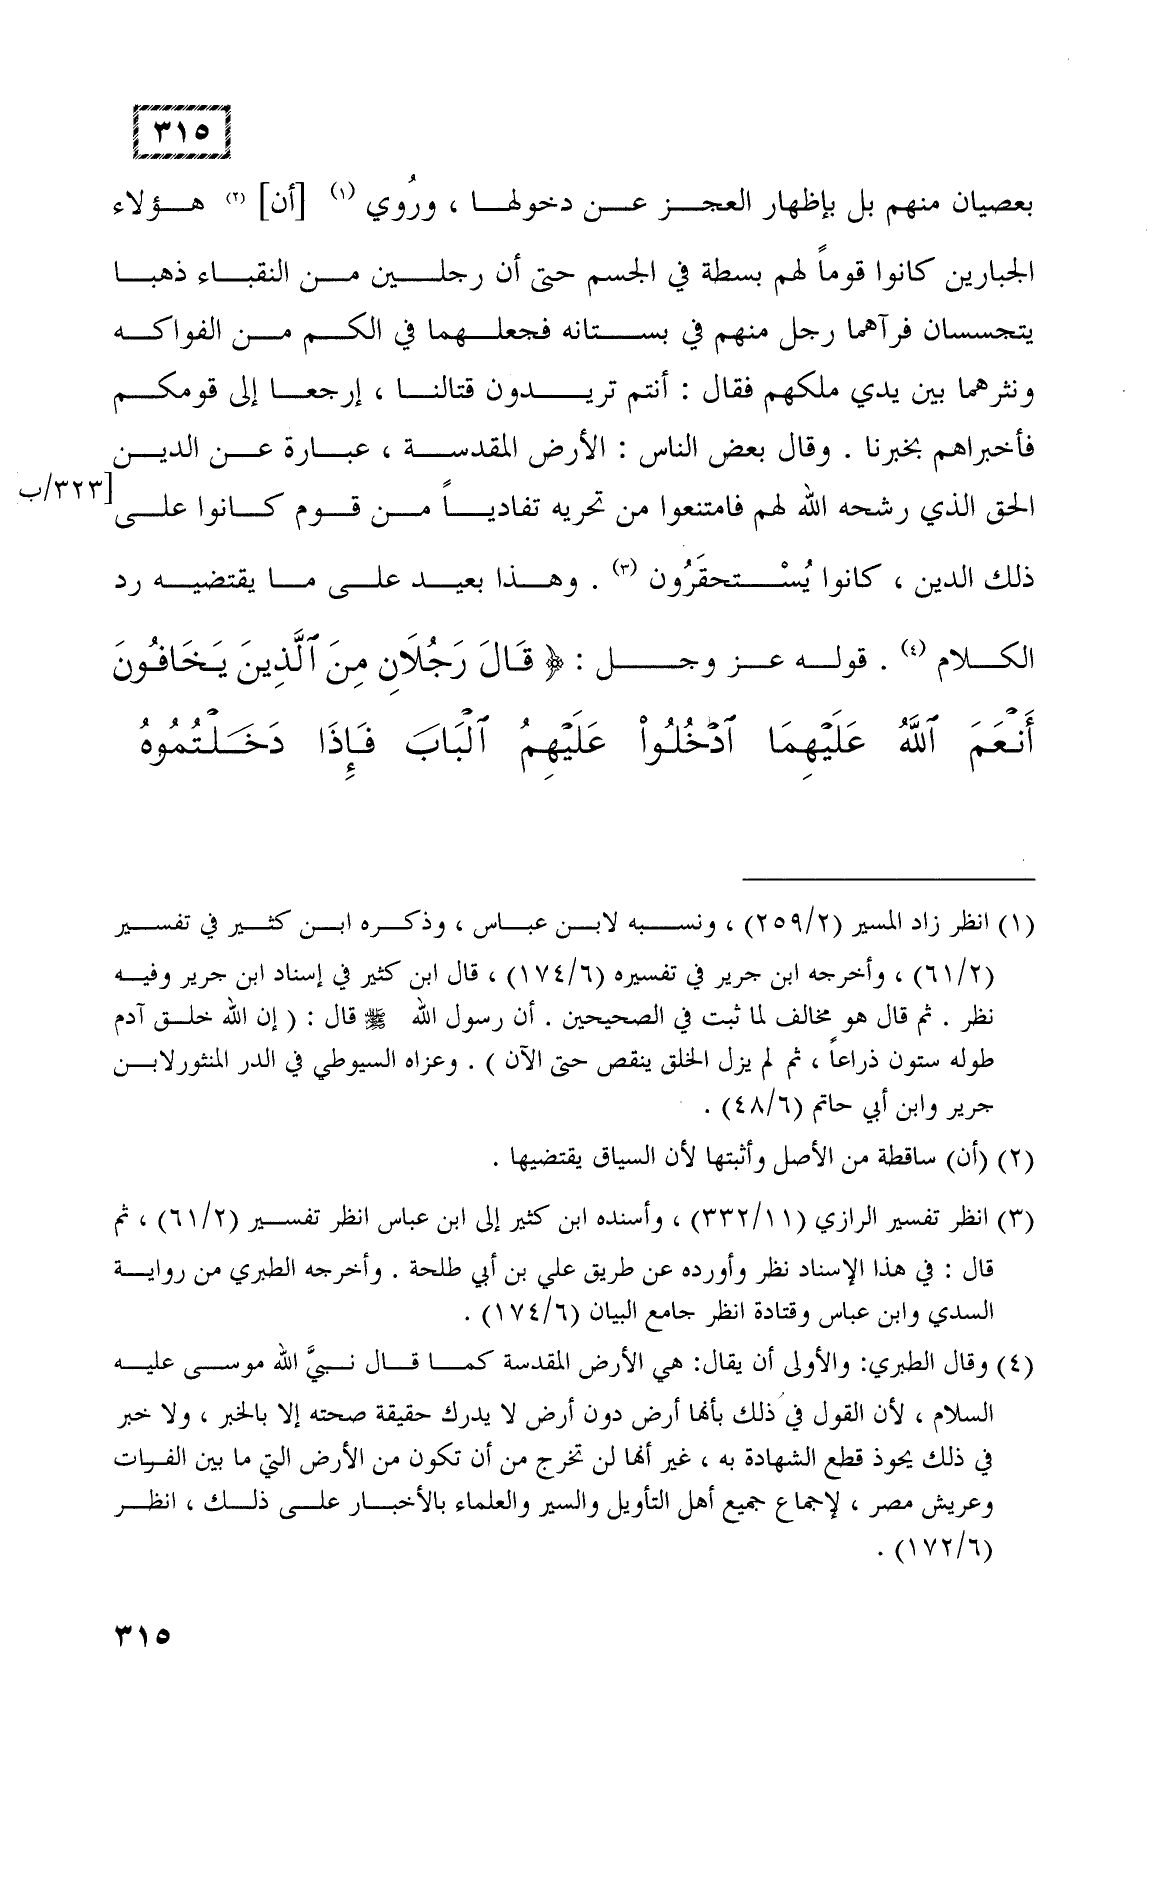 ٣١٥
بعصيان منهم بل بإظهار العجز عن دخولها ، ورُوي (١) [أن] (٢) هؤلاء
الجبارين كانوا قوماً لهم بسطة في الجسم حتى أن رجلين من النقباء ذهبا
يتجسسان فرآهما رجل منهم في بستانه فجعلهما في الكم من الفواكه
ونثرهما بين يدي ملكهم فقال : أنتم تريدون قتالنا ، إرجعا إلى قومكم
فأخبراهم بخبرنا . وقال بعض الناس : الأرض المقدسة ، عبارة عن الدين
[٣٢٣/ب
الحق الذي رشحه الله لهم فامتنعوا من تحريه تفادياً من قوم كانوا على
ذلك الدين ، كانوا يُسْتحقَرُون (٣) . وهذا بعيد على ما يقتضيه رد
الكلام (٤) . قوله عز وجل : ﴿ قَالَ رَجُلَانِ مِنَ ٱلَّذِينَ يَخَافُونَ
أَنْعَمَ ٱللَّهُ عَلَيْهِمَا ٱدْخُلُوا۟ عَلَيْهِمُ ٱلْبَابَ فَإِذَا دَخَلْتُمُوهُ
(١) انظر زاد المسير (٢٥٩/٢) ، ونسبه لابن عباس ، وذكره ابن كثير في تفسير
(٦١/٢) ، وأخرجه ابن جرير في تفسيره (١٧٤/٦) ، قال ابن كثير في إسناد ابن جرير وفيه
نظر . ثم قال هو مخالف لما ثبت في الصحيحين . أن رسول الله ﷺ قال : ( إن الله خلق آدم
طوله ستون ذراعاً ، ثم لم يزل الخلق ينقص حتى الآن ) . وعزاه السيوطي في الدر المنثورلابن
جرير وابن أبي حاتم (٤٨/٦) .
(٢) (أن) ساقطة من الأصل وأثبتها لأن السياق يقتضيها .
(٣) انظر تفسير الرازي (٣٣٢/١١) ، وأسنده ابن كثير إلى ابن عباس انظر تفسير (٦١/٢) ، ثم
قال : في هذا الإسناد نظر وأورده عن طريق علي بن أبي طلحة . وأخرجه الطبري من رواية
السدي وابن عباس وقتادة انظر جامع البيان (١٧٤/٦) .
(٤) وقال الطبري: والأولى أن يقال: هي الأرض المقدسة كما قال نبيَّ الله موسى عليه
السلام ، لأن القول في ذلك بأنها أرض دون أرض لا يدرك حقيقة صحته إلا بالخبر ، ولا خبر
في ذلك يحوذ قطع الشهادة به ، غير أنها لن تخرج من أن تكون من الأرض التي ما بين الفرات
وعريش مصر ، لإجماع جميع أهل التأويل والسير والعلماء بالأخبار على ذلك ، انظر
(١٧٢/٦) .
٣١٥